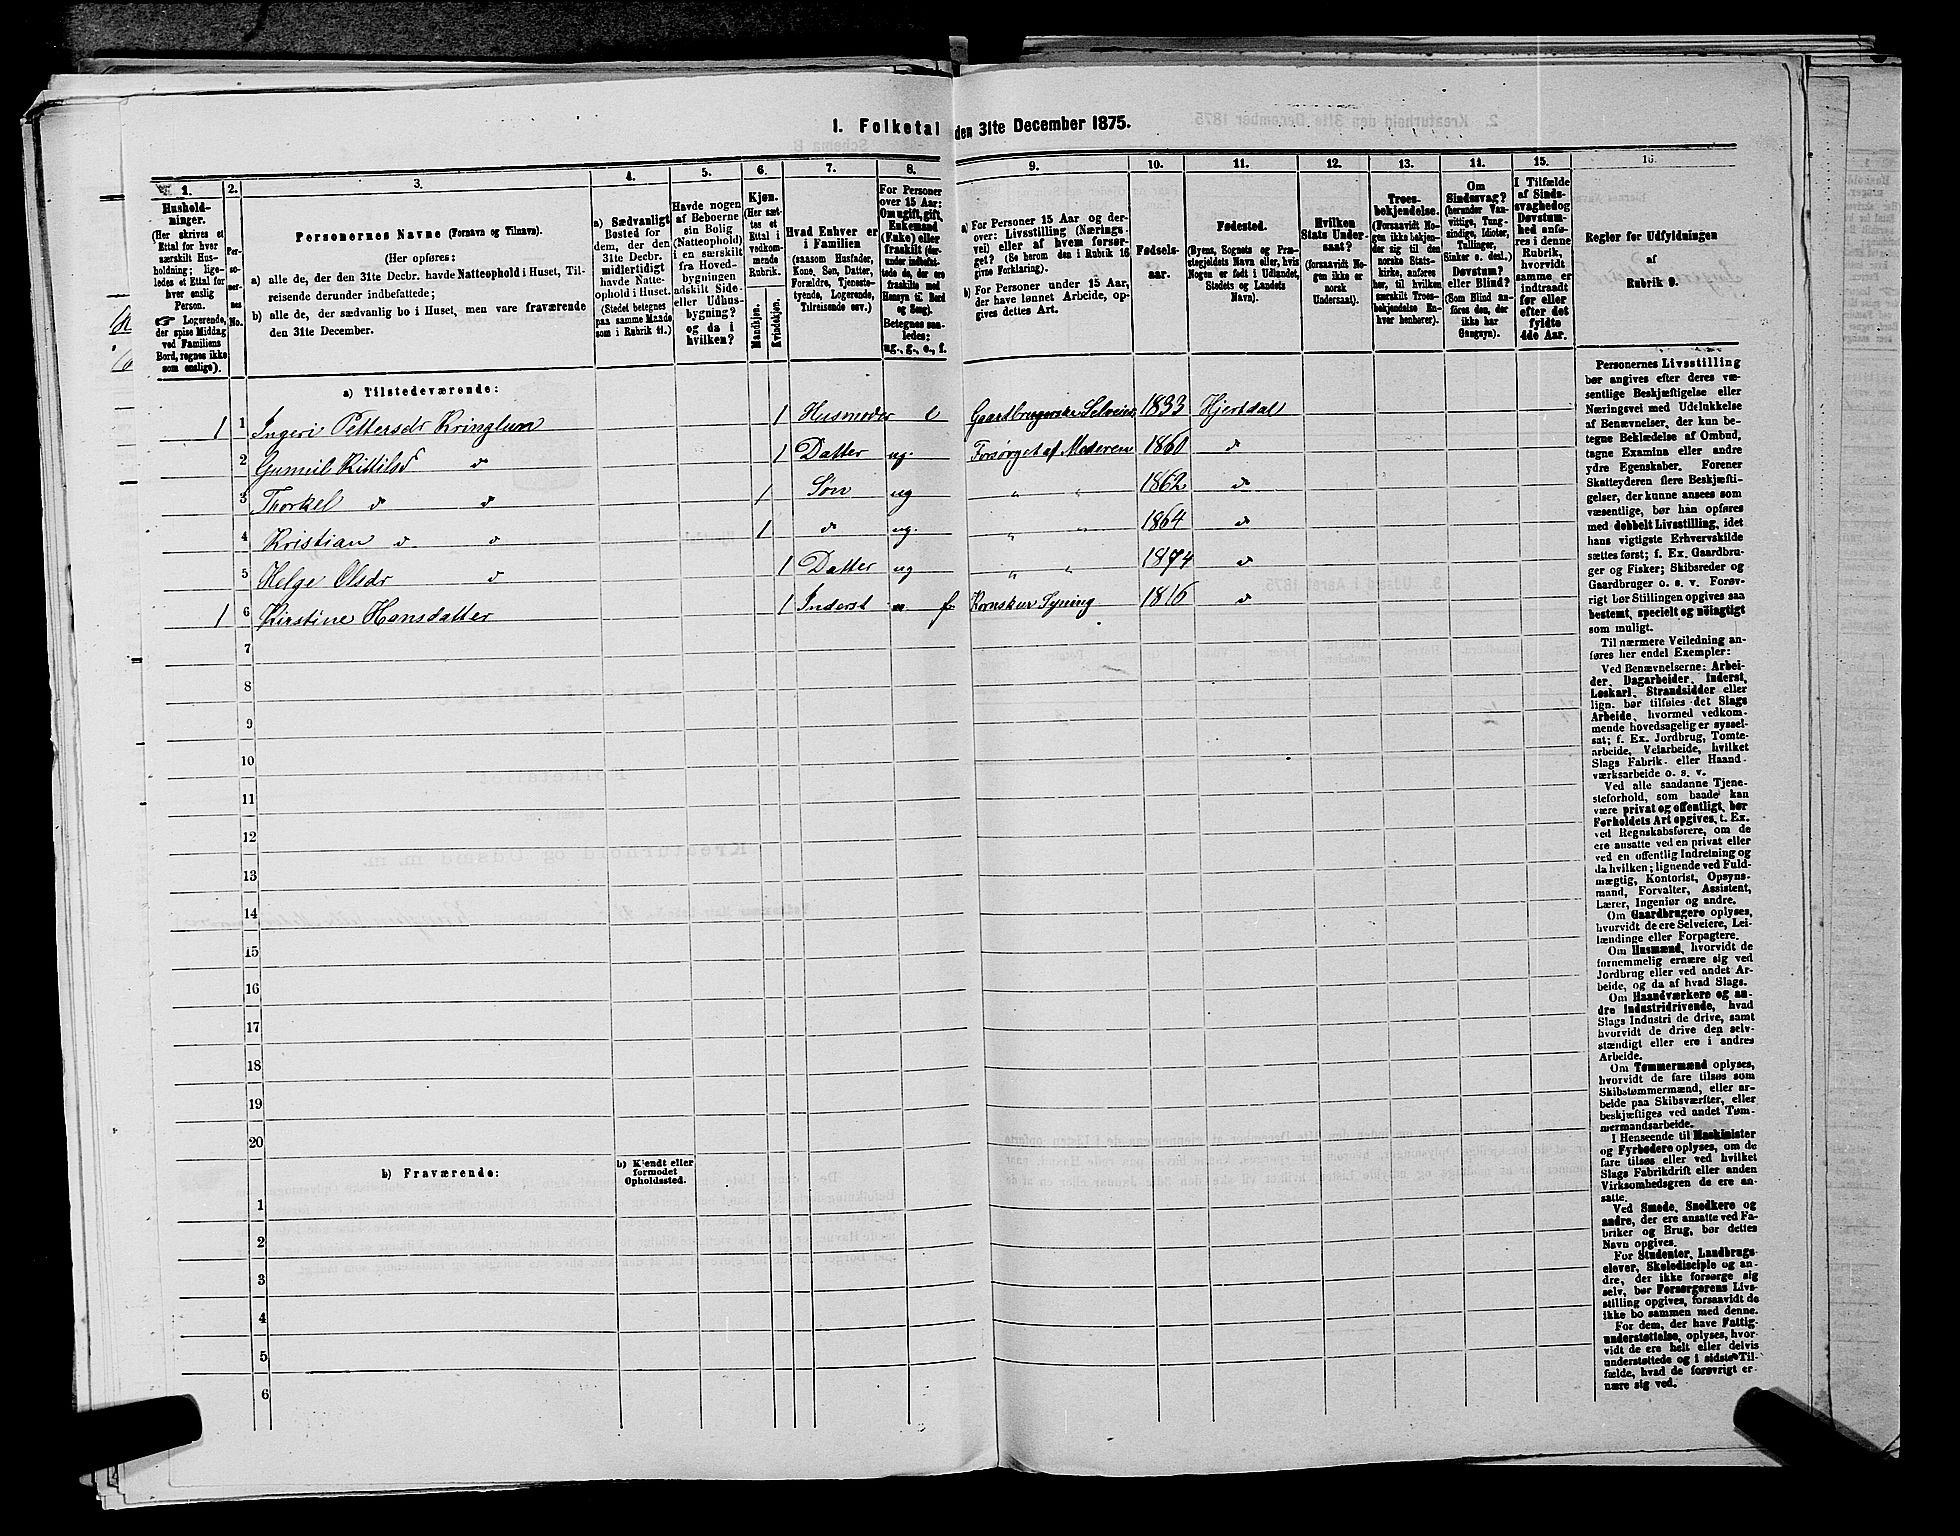 1. Folketal den 31te December 1875.
1. 2. 3. 4. 5. 6. 7. 8. 9. 10. 11. 12. 13. 14. 15. 16.
Hushold-
ninger.
(Her skrives et
Ettal for hver
særskilt Hus-
holdning; lige-
ledes et Ettal for
hver enslig
Person.
☞ Logerende,
der spise Middag
ved Familiens
Bord, regnes ikke
som enslige).
Per-
so-
ner-
nes
No.
Personernes Navne (Fornavn og Tilnavn).
(Her opføres:
a) alle de, der den 31te Decbr. havde Natteophold i Huset, Til-
reisende derunder indbefattede;
b) alle de, der sædvanlig bo i Huset, men vare fraværende
den 31te December.
a) Sædvanligt
Bosted for
dem, der den
31te Decbr.
midlertidigt
havde Natte-
ophold i Huset.
(Stedet betegnes
paa samme Maade
som i Rubrik 11.)
Havde nogen
af Beboerne
sin Bolig
(Natteophold)
i en særskilt
fra Hoved-
bygningen
adskilt Side-
eller Udhus-
bygning?
og da i
hvilken?
Kjøn.
(Her sæt-
tes et
Ettal i
vedkom-
mende
Rubrik.
Mandkjøn.
Kvindekjøn.
Hvad Enhver er
i Familien
(saasom Husfader,
Kone, Søn, Datter,
Forældre, Tjeneste-
tyende, Logerende,
Tilreisende osv.)
For Personer
over 15 Aar:
Om ugift, gift,
Enkemand
(Enke) eller
fraskilt (der-
under indbefat-
tede de, der ere
fraskilte med
Hensyn til Bord
og Seng).
Betegnes saa-
ledes:
ug., g., e., f.
a) For Personer 15 Aar og der-
over: Livsstilling (Nærings-
vei) eller af hvem forsør-
get? (Se herom den i Rubrik 16
givne Forklaring).
b) For Personer under 15 Aar,
der have lønnet Arbeide, op-
gives dettes Art.
Fødsels-
aar.
Fødested.
(Byens, Sognets og Præ-
stegjeldets Navn eller, hvis
Nogen er født i Udlandet,
Stedets og Landets
Navn).
Hvilken
Stats Under-
saat?
(forsaavidt No-
gen ikke er
norsk
Undersaat).
Troes-
bekjendelse.
(Forsaavidt No-
gen ikke bekjen-
der sig til den
norske Stats-
kirke, anføres
her, til hvilken
særskilt Troes-
bekjendelse En-
hver henhører).
Om
Sindssvag?
(herunder Van-
vittige, Tung-
sindige, Idioter,
Tullinger,
Sinker o. desl.)
Døvstum?
eller Blind?
(Som Blind an-
føres den, der
ikke har
Gangsyn).
I Tilfælde
af Sinds-
svaghed og
Døvstum-
hed anfø-
res i denne
Rubrik,
hvorvidt
samme er
indtraadt
før eller
efter det
fyldte
4de Aar.
Regler for Udfyldningen
af
Rubrik 9.
a) Tilstedeværende:
1 1 Ingeri Pettersdr Kringlum 1 Husmoder e Gaardbrugerske Selveier 1833 Hjertdal
2 Gunnil Kittilsd d 1 Datter ug. Forsørget af Moderen 1860 d
3 Thorkel d d 1 Søn ug " " 1862 d
4 Kristian d d 1 d ug. " " 1864 d
5 Helge Olsdr d 1 Datter ug " " 1874 d
1 6 Kirstine Hansdatter 1 Inderst f Syning 1816 d
7
8
9
10
11
12
13
14
15
16
17
18
19
20
b) Fraværende:
b) Kjendt eller
formodet
Opholdssted.
1
2
3
4
5
6
Personernes Livsstilling
bør angives efter deres væ-
sentlige Beskjæftigelse eller
Næringsvei med Udelukkelse
af Benævnelser, der kun be-
tegne Beklædelse af Ombud,
tagne Examina eller andre
ydre Egenskaber. Forener
Skatteyderen flere Beskjæfti-
gelser, der kunne ansees som
væsentlige, bør han opføres
med dobbelt Livsstilling, idet
hans vigtigste Erhvervskilde
sættes først; f. Ex. Gaardbru-
ger og Fisker; Skibsreder og
Gaardbruger o. s. v. Forøv-
rigt bør Stillingen opgives saa
bestemt, specielt og nøiagtigt
som muligt.
Til nærmere Veiledning an-
føres her endel Exempler:
Ved Benævnelserne: Arbei-
der, Dagarbeider, Inderst,
Løskarl, Strandsidder eller
lign. bør tilføies det Slags
Arbeide, hvormed vedkom-
mende hovedsagelig er syssel-
sat; f. Ex. Jordbrug, Tomte-
arbeide, Veiarbeide, hvilket
Slags Fabrik- eller Haand-
værksarbeide o. s. v.
Ved alle saadanne Tjene-
steforhold, som baade kan
være privat og offentligt, bør
Forholdets Art opgives, t. Ex.
ved Regnskabsførere, om de
ere ansatte ved en privat eller
ved en offentlig Indretning og
da hvilken; lignende ved Fuld-
mægtig, Kontorist, Opsyns-
mand, Forvalter, Assistent,
Lærer, Ingeniør og andre.
Om Gaardbrugere oplyses,
hvorvidt de ere Selveiere, Lei-
lændinge eller Forpagtere.
Om Husmænd, hvorvidt de
fornemmelig ernære sig ved
Jordbrug eller ved andet Ar-
beide, og da af hvad Slags.
Om Haandværkere og an-
dre Industridrivende, hvad
Slags Industri de drive, samt
hvorvidt de drive den selv-
stændigt eller ere i andres
Arbeide.
Om Tømmermænd oplyses,
hvorvidt de fare tilsøs som
Skibstømmermænd, eller ar-
beide paa Skibsværfter, eller
beskjæftiges ved andet Tøm-
mermandsarbeide.
I Henseende til Maskinister
og Fyrbødere oplyses, om de
fare tilsøs eller ved hvilket
Slags Fabrikdrift eller anden
Virksomhedsgren de ere an-
satte.
Ved Smede, Snedkere og
andre, der ere ansatte ved Fa-
briker og Brug, bør dettes
Navn opgives.
For Studenter, Landbrugs-
elever, Skoledisciple og an-
dre, der ikke forsørge sig
selv, bør Forsørgerens Livs-
stilling opgives, forsaavidt de
ikke bo sammen med denne.
For dem, der have Fattig-
understøttelse, oplyses, hvor-
vidt de ere helt eller delvis
understøttede og i sidste Til-
fælde, hvad de forøvrigt er-
nære sig ved.